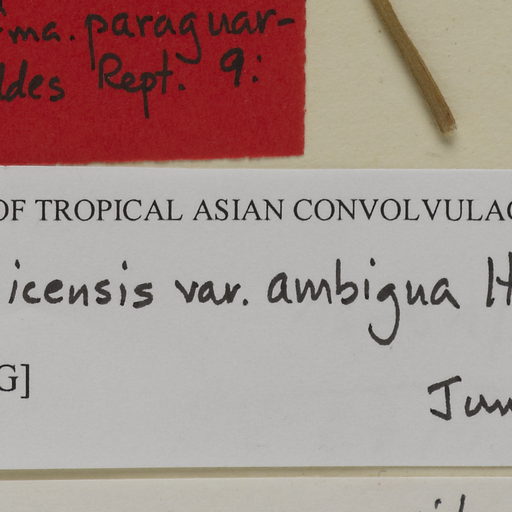 ma. paraguar-
ldes Rept. 9:
OF TROPICAL ASIAN CONVOLVULAC
icensis var. ambigua H
G]
Jun